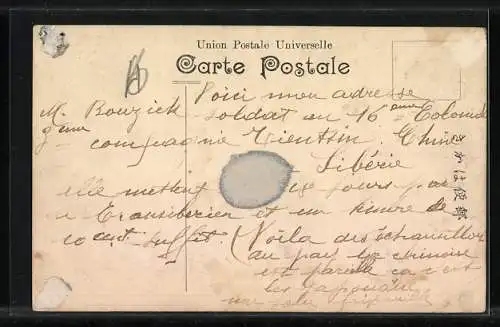 Union Postale Universelle
Carte Postale
Voici mon adresse
M. Bouzick soldat au 16ème Colonial
9ème compagnie Tientsin. Chine
Sibérie
elle mettent 18 jours par
Transiberien et un timbre de
10 cent. suffit. (Voila des échantillons
du pays la chinoise
est pareille ça c'est
les Japonaise
きかは便郵